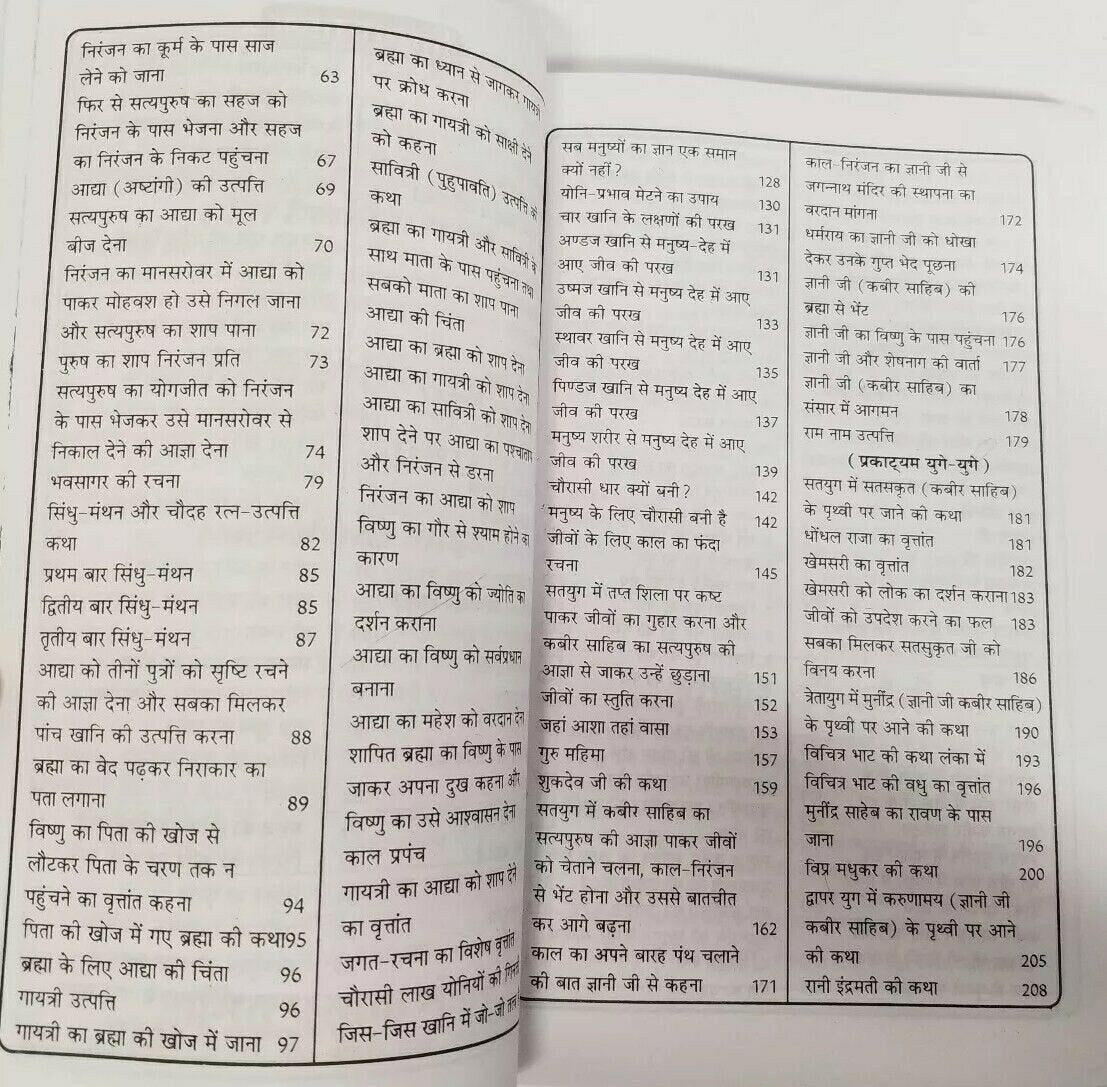 निरंजन का कूर्म के पास साज
लेने को जाना 63
फिर से सत्यपुरुष का सहज को
निरंजन के पास भेजना और सहज
का निरंजन के निकट पहुंचना 67
आद्या (अष्टांगी) की उत्पत्ति 69
सत्यपुरुष का आद्या को मूल
बीज देना 70
निरंजन का मानसरोवर में आद्या को
पाकर मोहवश हो उसे निगल जाना
और सत्यपुरुष का शाप पाना 72
पुरुष का शाप निरंजन प्रति 73
सत्यपुरुष का योगजीत को निरंजन
के पास भेजकर उसे मानसरोवर से
निकाल देने की आज्ञा देना 74
भवसागर की रचना 79
सिंधु-मंथन और चौदह रत्न-उत्पत्ति
कथा 82
प्रथम बार सिंधु-मंथन 85
द्वितीय बार सिंधु-मंथन 85
तृतीय बार सिंधु-मंथन 87
आद्या को तीनों पुत्रों को सृष्टि रचने
की आज्ञा देना और सबका मिलकर
पांच खानि की उत्पत्ति करना 88
ब्रह्मा का वेद पढ़कर निराकार का
पता लगाना 89
विष्णु का पिता की खोज से
लौटकर पिता के चरण तक न
पहुंचने का वृत्तांत कहना 94
पिता की खोज में गए ब्रह्मा की कथा95
ब्रह्मा के लिए आद्या की चिंता 96
गायत्री उत्पत्ति 96
गायत्री का ब्रह्मा की खोज में जाना 97
ब्रह्मा का ध्यान से जागकर गायत्री
पर क्रोध करना
ब्रह्मा का गायत्री को साक्षी देने
को कहना
सावित्री (पुहुपावति) उत्पत्ति की
कथा
ब्रह्मा का गायत्री और सावित्री के
साथ माता के पास पहुंचना तथा
सबको माता का शाप पाना
आद्या की चिंता
आद्या का ब्रह्मा को शाप देना
आद्या का गायत्री को शाप देना
आद्या का सावित्री को शाप देना
शाप देने पर आद्या का पश्चाताप
और निरंजन से डरना
निरंजन का आद्या को शाप
विष्णु का गौर से श्याम होने का
कारण
आद्या का विष्णु को ज्योति का
दर्शन कराना
आद्या का विष्णु को सर्वप्रधान
बनाना
आद्या का महेश को वरदान देना
शापित ब्रह्मा का विष्णु के पास
जाकर अपना दुख कहना और
विष्णु का उसे आश्वासन देना
काल प्रपंच
गायत्री का आद्या को शाप देने
का वृत्तांत
जगत-रचना का विशेष वृत्तांत
चौरासी लाख योनियों की
जिस-जिस खानि में जो-जो तत्व
सब मनुष्यों का ज्ञान एक समान
क्यों नहीं? 128
योनि-प्रभाव मेटने का उपाय 130
चार खानि के लक्षणों की परख 131
अण्डज खानि से मनुष्य-देह में
आए जीव की परख 131
उष्मज खानि से मनुष्य देह में आए
जीव की परख 133
स्थावर खानि से मनुष्य देह में आए
जीव की परख 135
पिण्डज खानि से मनुष्य देह में आए
जीव की परख 137
मनुष्य शरीर से मनुष्य देह में आए
जीव की परख 139
चौरासी धार क्यों बनी? 142
मनुष्य के लिए चौरासी बनी है 142
जीवों के लिए काल का फंदा
रचना 145
सतयुग में तप्त शिला पर कष्ट
पाकर जीवों का गुहार करना और
कबीर साहिब का सत्यपुरुष की
आज्ञा से जाकर उन्हें छुड़ाना 151
जीवों का स्तुति करना 152
जहां आशा तहां वासा 153
गुरु महिमा 157
शुकदेव जी की कथा 159
सतयुग में कबीर साहिब का
सत्यपुरुष की आज्ञा पाकर जीवों
को चेताने चलना, काल-निरंजन
से भेंट होना और उससे बातचीत
कर आगे बढ़ना 162
काल का अपने बारह पंथ चलाने
की बात ज्ञानी जी से कहना 171
काल-निरंजन का ज्ञानी जी से
जगन्नाथ मंदिर की स्थापना का
वरदान मांगना 172
धर्मराय का ज्ञानी जी को धोखा
देकर उनके गुप्त भेद पूछना 174
ज्ञानी जी (कबीर साहिब) की
ब्रह्मा से भेंट 176
ज्ञानी जी का विष्णु के पास पहुंचना 176
ज्ञानी जी और शेषनाग की वार्ता 177
ज्ञानी जी (कबीर साहिब) का
संसार में आगमन 178
राम नाम उत्पत्ति 179
(प्रकाट्यम युगे-युगे)
सतयुग में सतसकृत (कबीर साहिब)
के पृथ्वी पर जाने की कथा 181
धोंधल राजा का वृत्तांत 181
खेमसरी का वृत्तांत 182
खेमसरी को लोक का दर्शन कराना183
जीवों को उपदेश करने का फल 183
सबका मिलकर सतसुकृत जी को
विनय करना 186
त्रेतायुग में मुनींद्र (ज्ञानी जी कबीर साहिब)
के पृथ्वी पर आने की कथा 190
विचित्र भाट की कथा लंका में 193
विचित्र भाट की वधु का वृत्तांत 196
मुनींद्र साहेब का रावण के पास
जाना 196
विप्र मधुकर की कथा 200
द्वापर युग में करुणामय (ज्ञानी जी
कबीर साहिब) के पृथ्वी पर आने
की कथा 205
रानी इंद्रमती की कथा 208